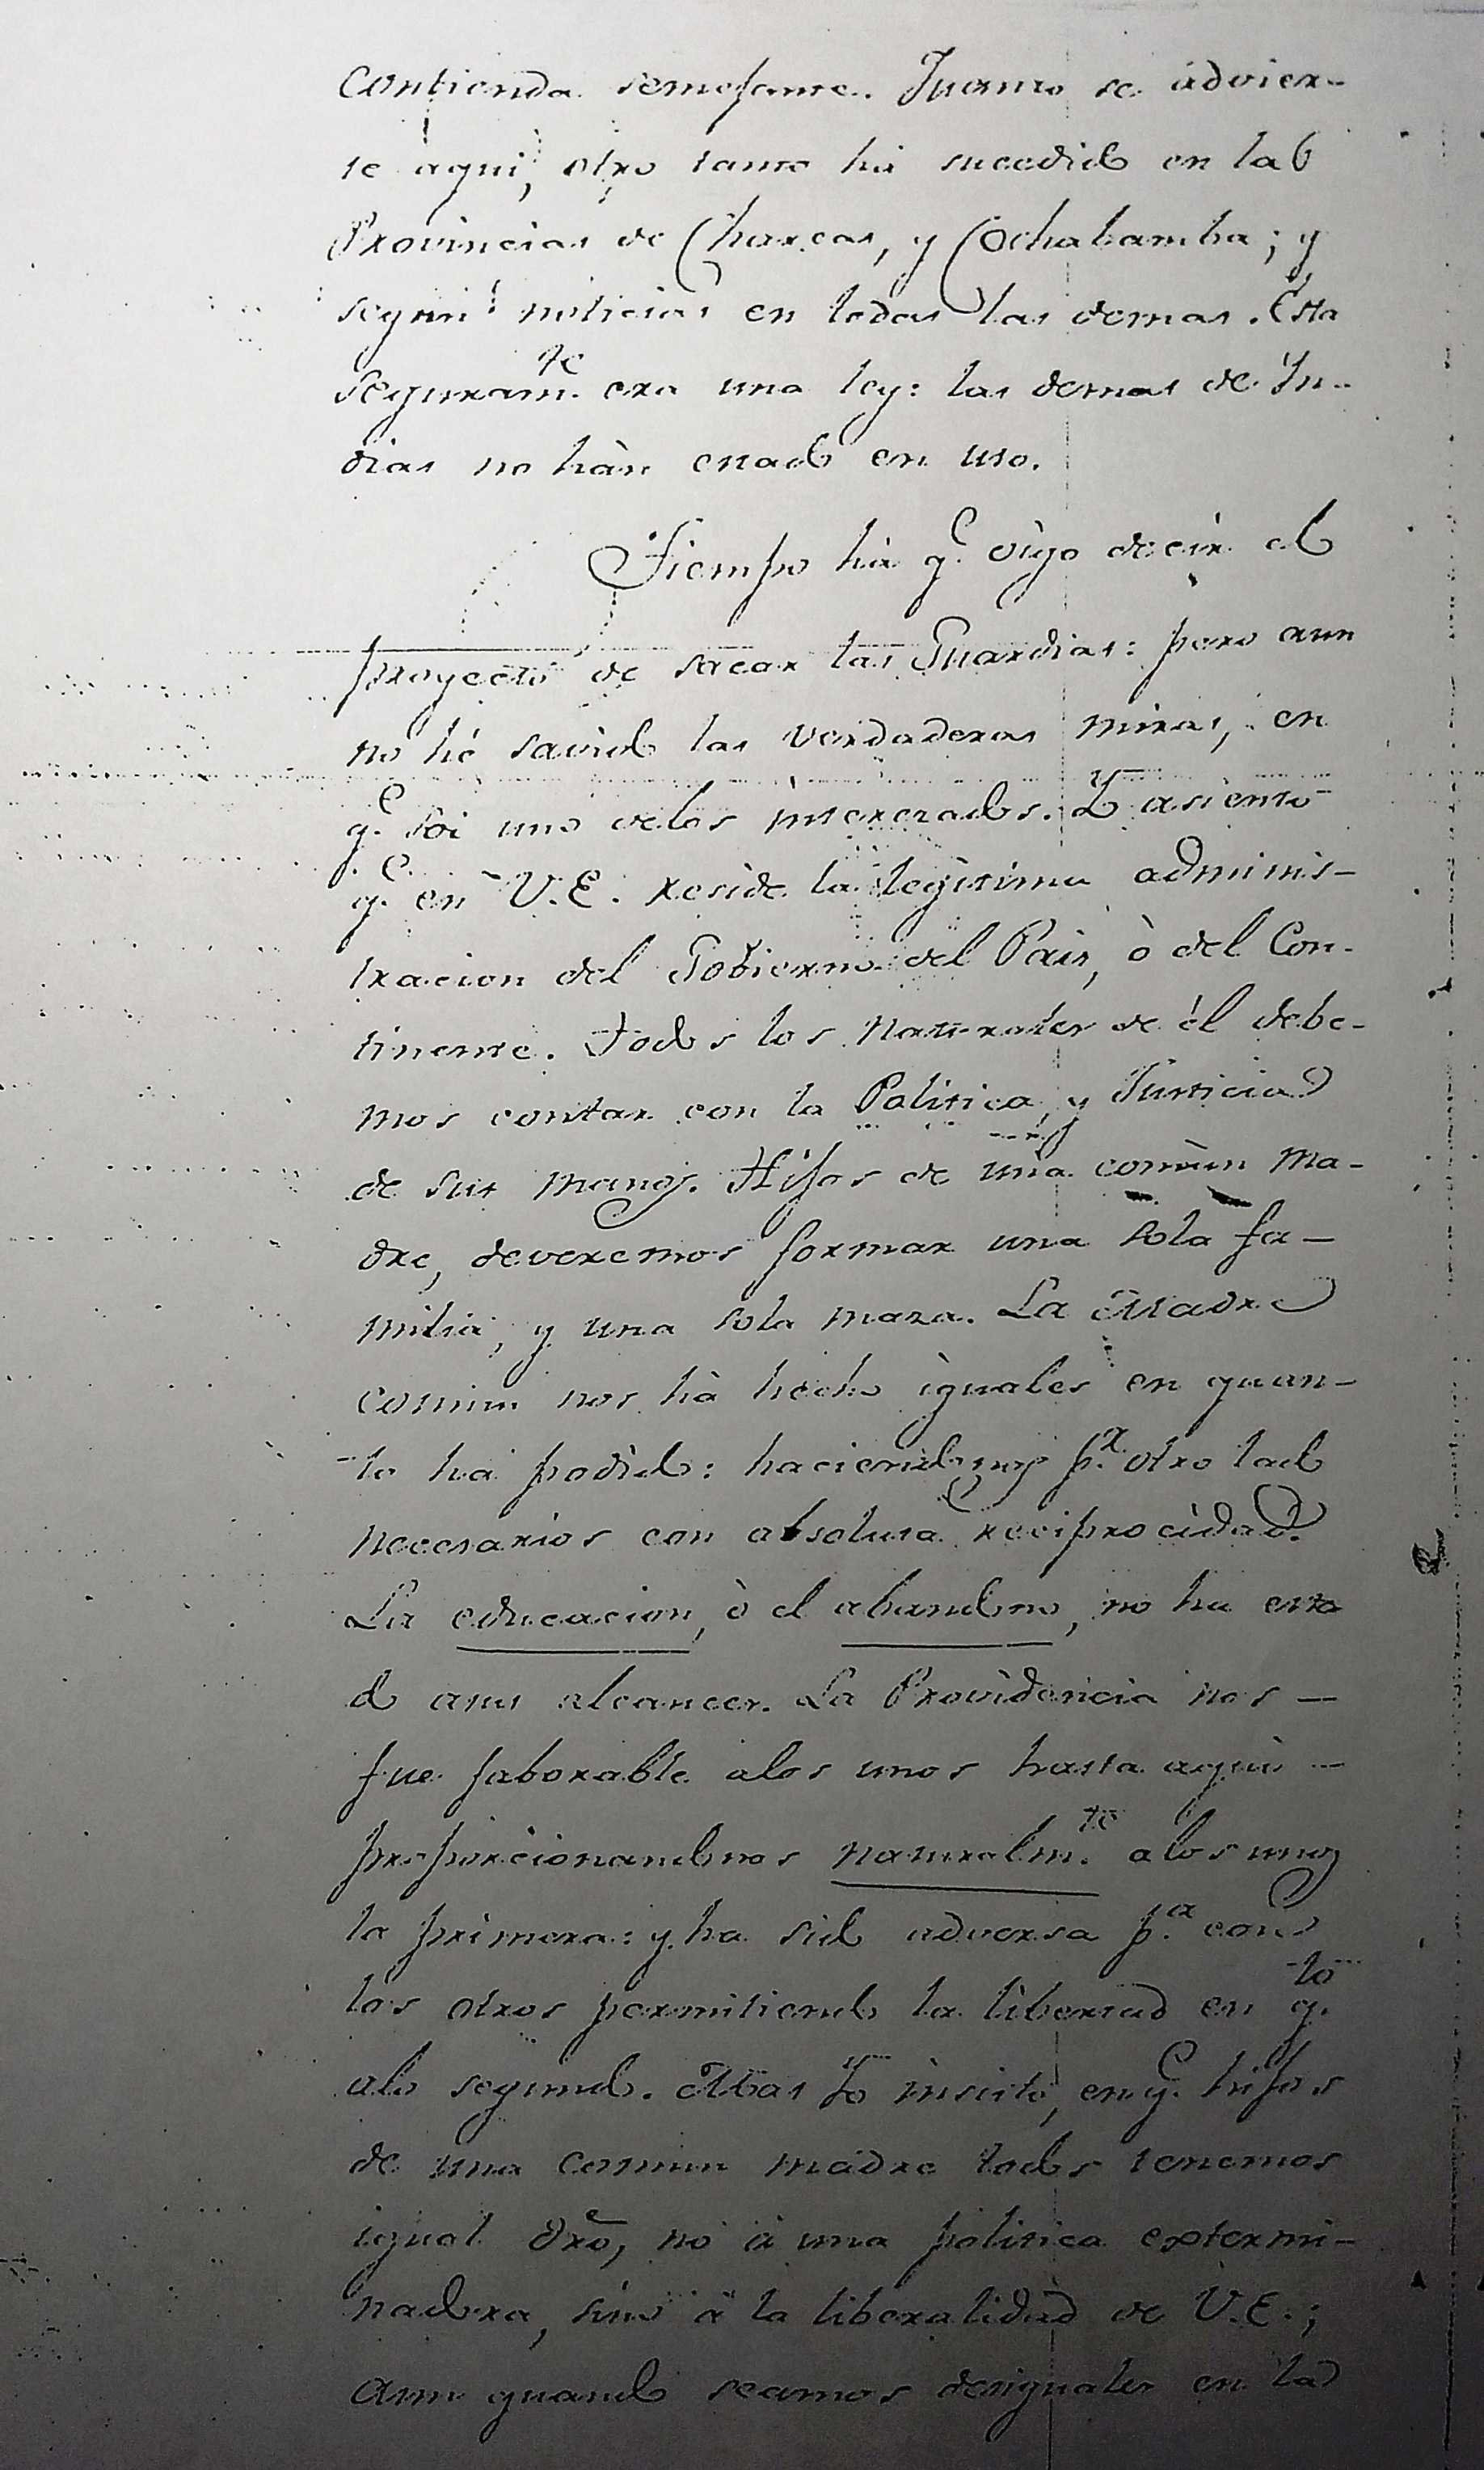 Contienda semejante. Quanto se advier-
te aqui, otro tanto há sucedido en las
Provincias de Charcas, y Cochabamba; y
segun noticias en todas las demas. Esta
seguram.te era una ley: las demas de In-
dias no hàn estado en uso.
Tiempo há q.e oigo decir el
proyecto de sacar las Guardias: pero aun
no hé savido las verdaderas miras, en
q.e soi uno delos interezados. Yo asiento
q.e en V.E. reside la legitima adminis-
tracion del Gobierno del Pais, ò del Con-
tinente. Todos los naturales de él debe-
mos contar con la Politica, y Justicia
de sus manos. Hijos de una común ma-
dre, deveremos formar una sola fa-
milia, y una sola maza. La Madre
comun nos hà hecho iguales en quan-
to ha podido: haciendonos p.r otro lado
necesarios con absoluta reciprocidad.
La educacion, ò el abandono, no ha esta
do asus alcances. La Providencia nos
fue faborable alos unos hasta aqui
proporcionandonos naturalm.te alos unos
la primera: y ha sido adversa p.a con
los otros permitiendo la libertad en q.to
alo segundo. Mas Yo insisto, en q.e hijos
de una comun madre todos tenemos
igual dro, no à una politica extermi-
nadora, sino à la liberalidad de V.E.;
aun quando seamos desiguales en la